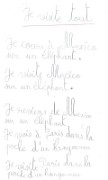 Je visite tout
Je cours à Mexico
sur un éléphant.
Je visite Mexico
sur un éléphant.
Je reviens de Mexico
sur un éléphant.
Je vais à Paris dans la
poche d'un kangourou
Je visite Paris dans la
poche d'un kangourou